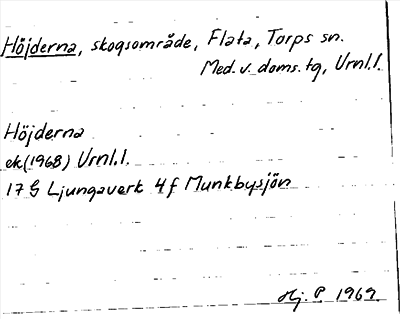 Höjderna, skogsområde, Flata, Torps sn.
Med. v. doms. tg, Urnl. l.
Höjderna
ek (1968) Urnl. l.
17 G Ljungaverk 4 f Munkbysjön
Hj. P 1969